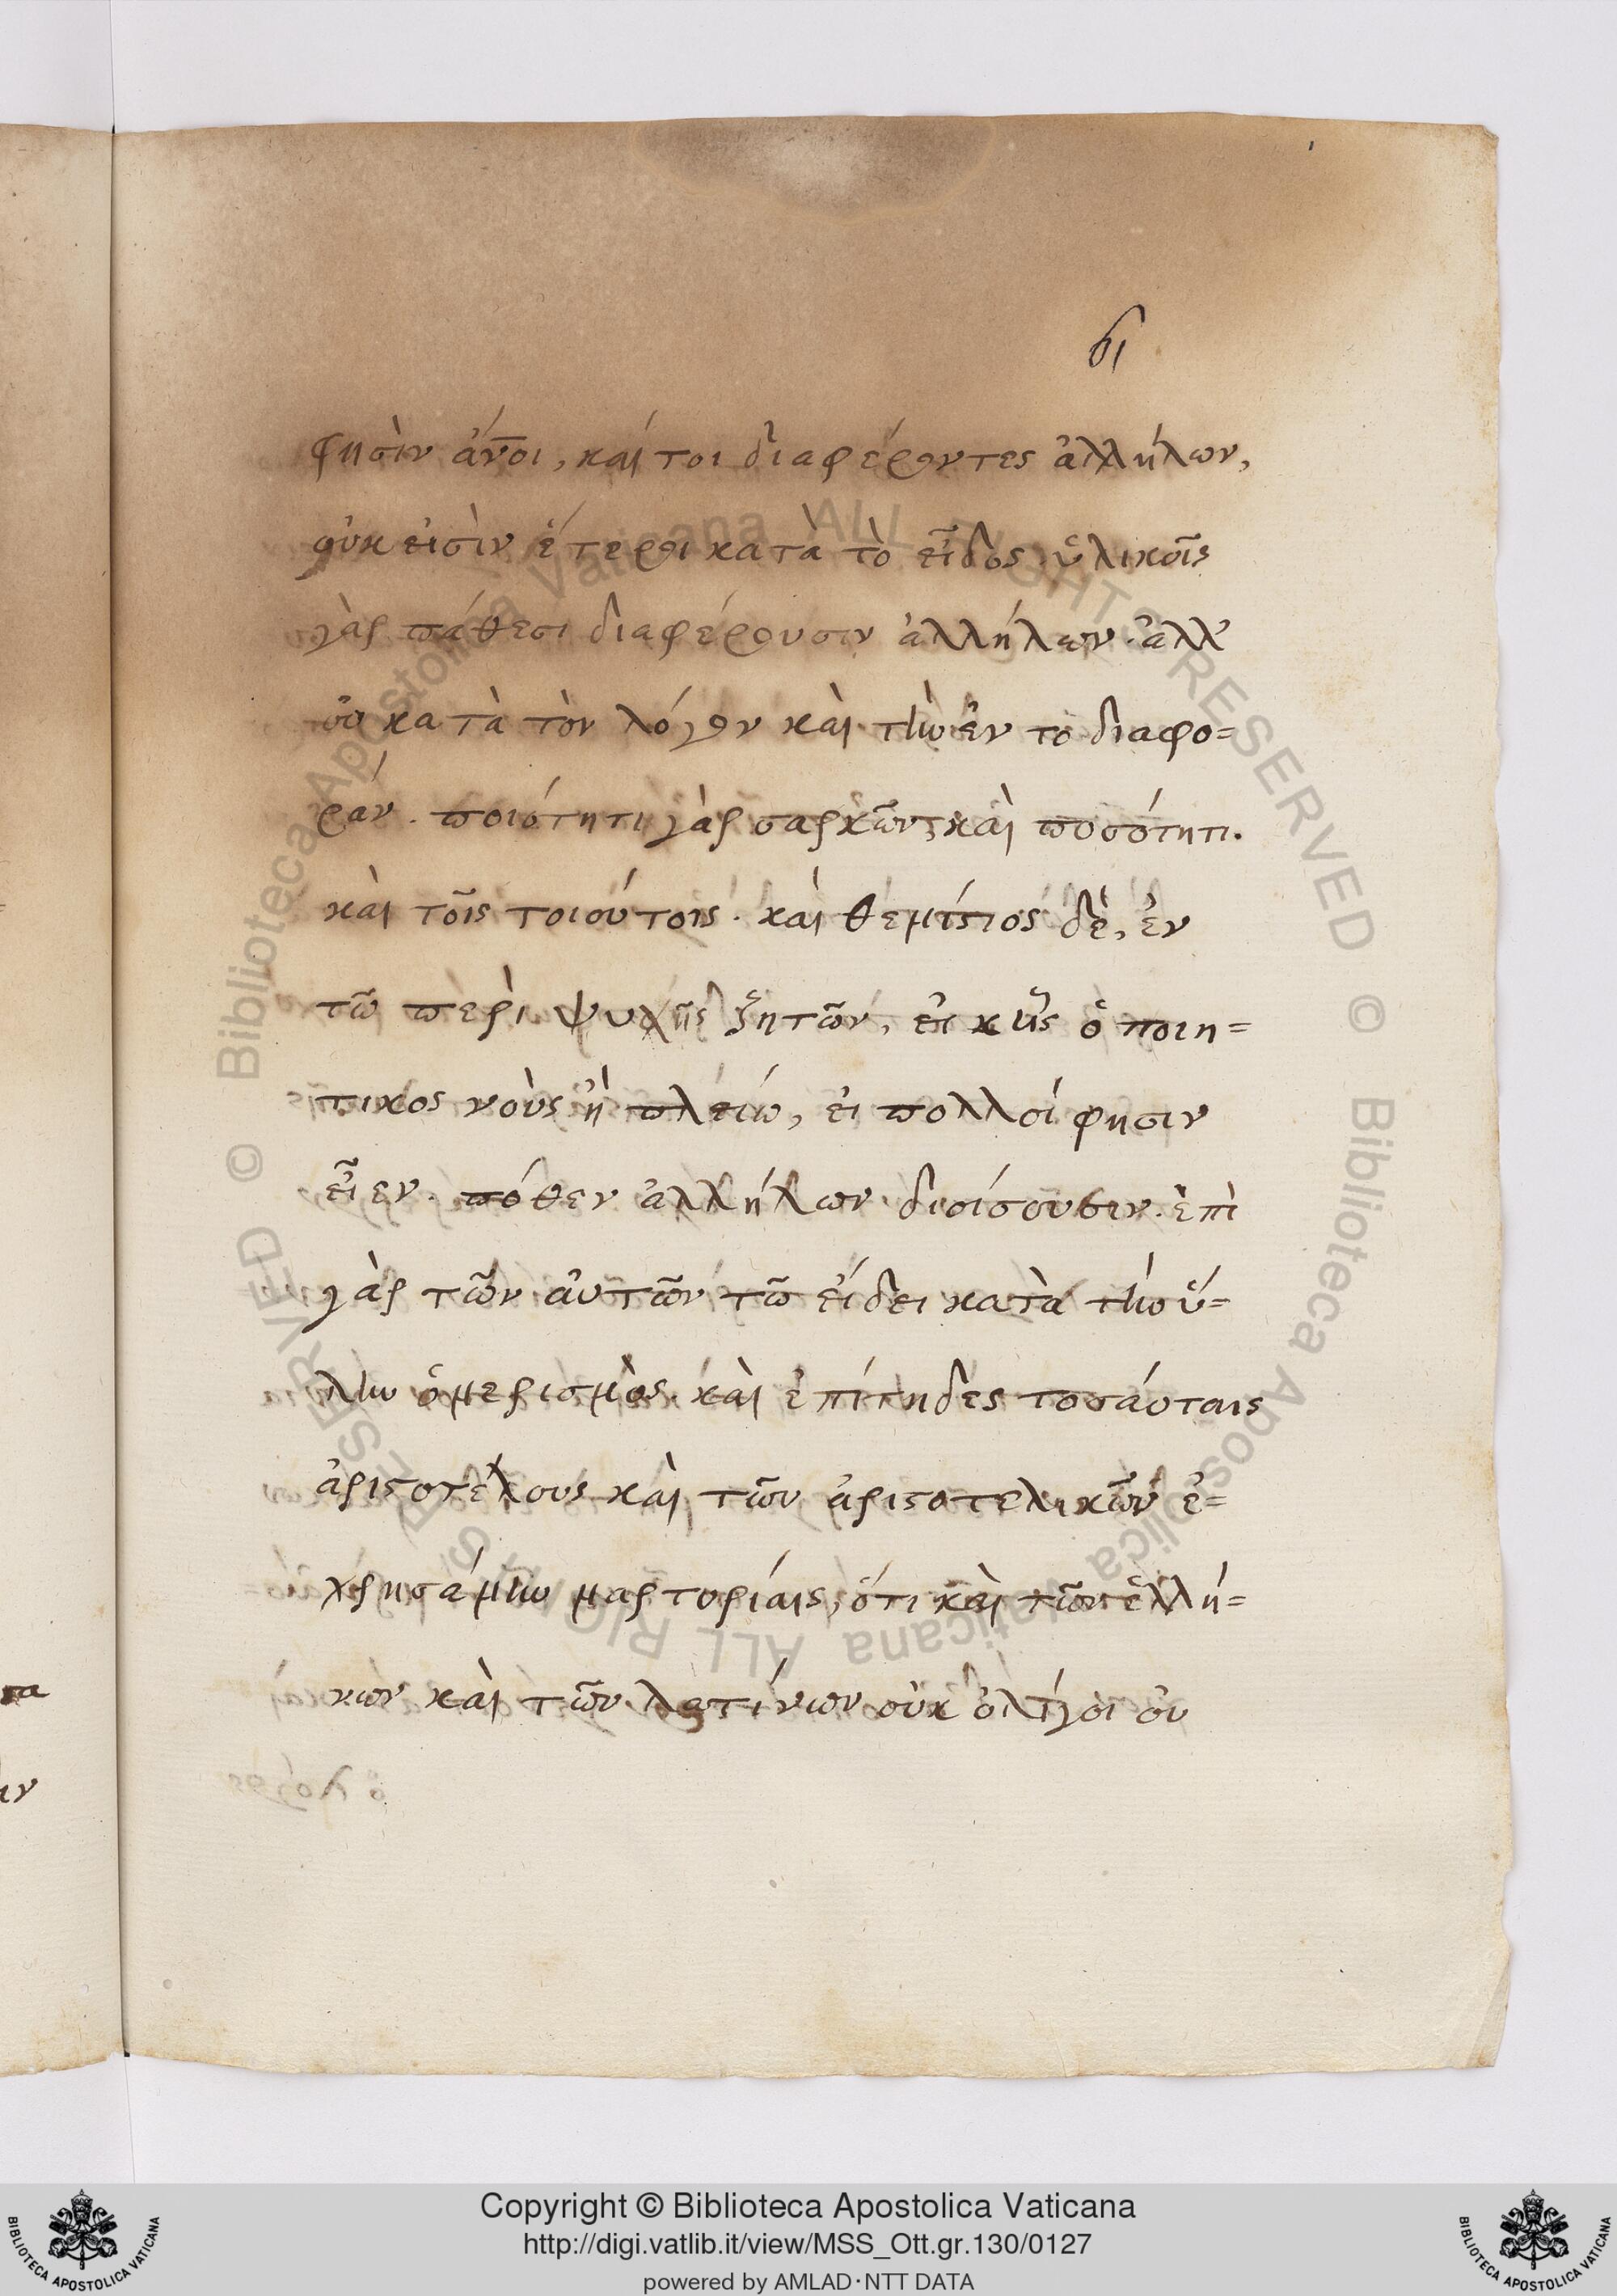 61
φησὶν ἄν̅οι, καί τοι διαφέροντες ἀλλήλων,
οὐκ εἰσὶν ἕτεροι κατὰ τὸ εἶδος. ὑλικοῖς
γὰρ πάθεσι διαφέρουσιν ἀλλήλων. ἀλλ'
οὐ κατὰ τὸν λόγον καὶ τὴν ἐν τὸ διαφο=
ράν. ποιότητι γὰρ σαρκῶν, καὶ ποσότητι.
καὶ τοῖς τοιούτοις. καὶ θεμίστιος δὲ, ἐν
τῶ περὶ ψυχῆς ζητῶν, εἰ εἷς ὁ ποιη=
τικος νοὺς ἢ πλείω, εἰ πολλοί φησιν
εἶεν. πόθεν ἀλλήλων διοίσουσιν. ἐπὶ
γὰρ τῶν αὐτῶν τῶ εἴδει κατὰ τὴν ὕ=
λην ὁ μερισμὸς. καὶ ἐπίτηδες τοσάυταις
ἀριστοτέλους καὶ τῶν ἀριστοτελικῶν ἐ=
χρησάμην μαρτυρίαις, ὅτι καὶ τῶν ἑλλή=
νων καὶ τῶν λατίνων οὐκ ὀλίγοι οὐ
Copyright © Biblioteca Apostolica Vaticana
http://digi.vatlib.it/view/MSS_Ott.gr.130/0127
powered by AMLAD·NTT DATA
BIBLIOTECA APOSTOLICA VATICANA
BIBLIOTECA APOSTOLICA VATICANA
© Biblioteca Apostolica Vaticana ALL RIGHTS RESERVED
© Biblioteca Apostolica Vaticana ALL RIGHTS RESERVED